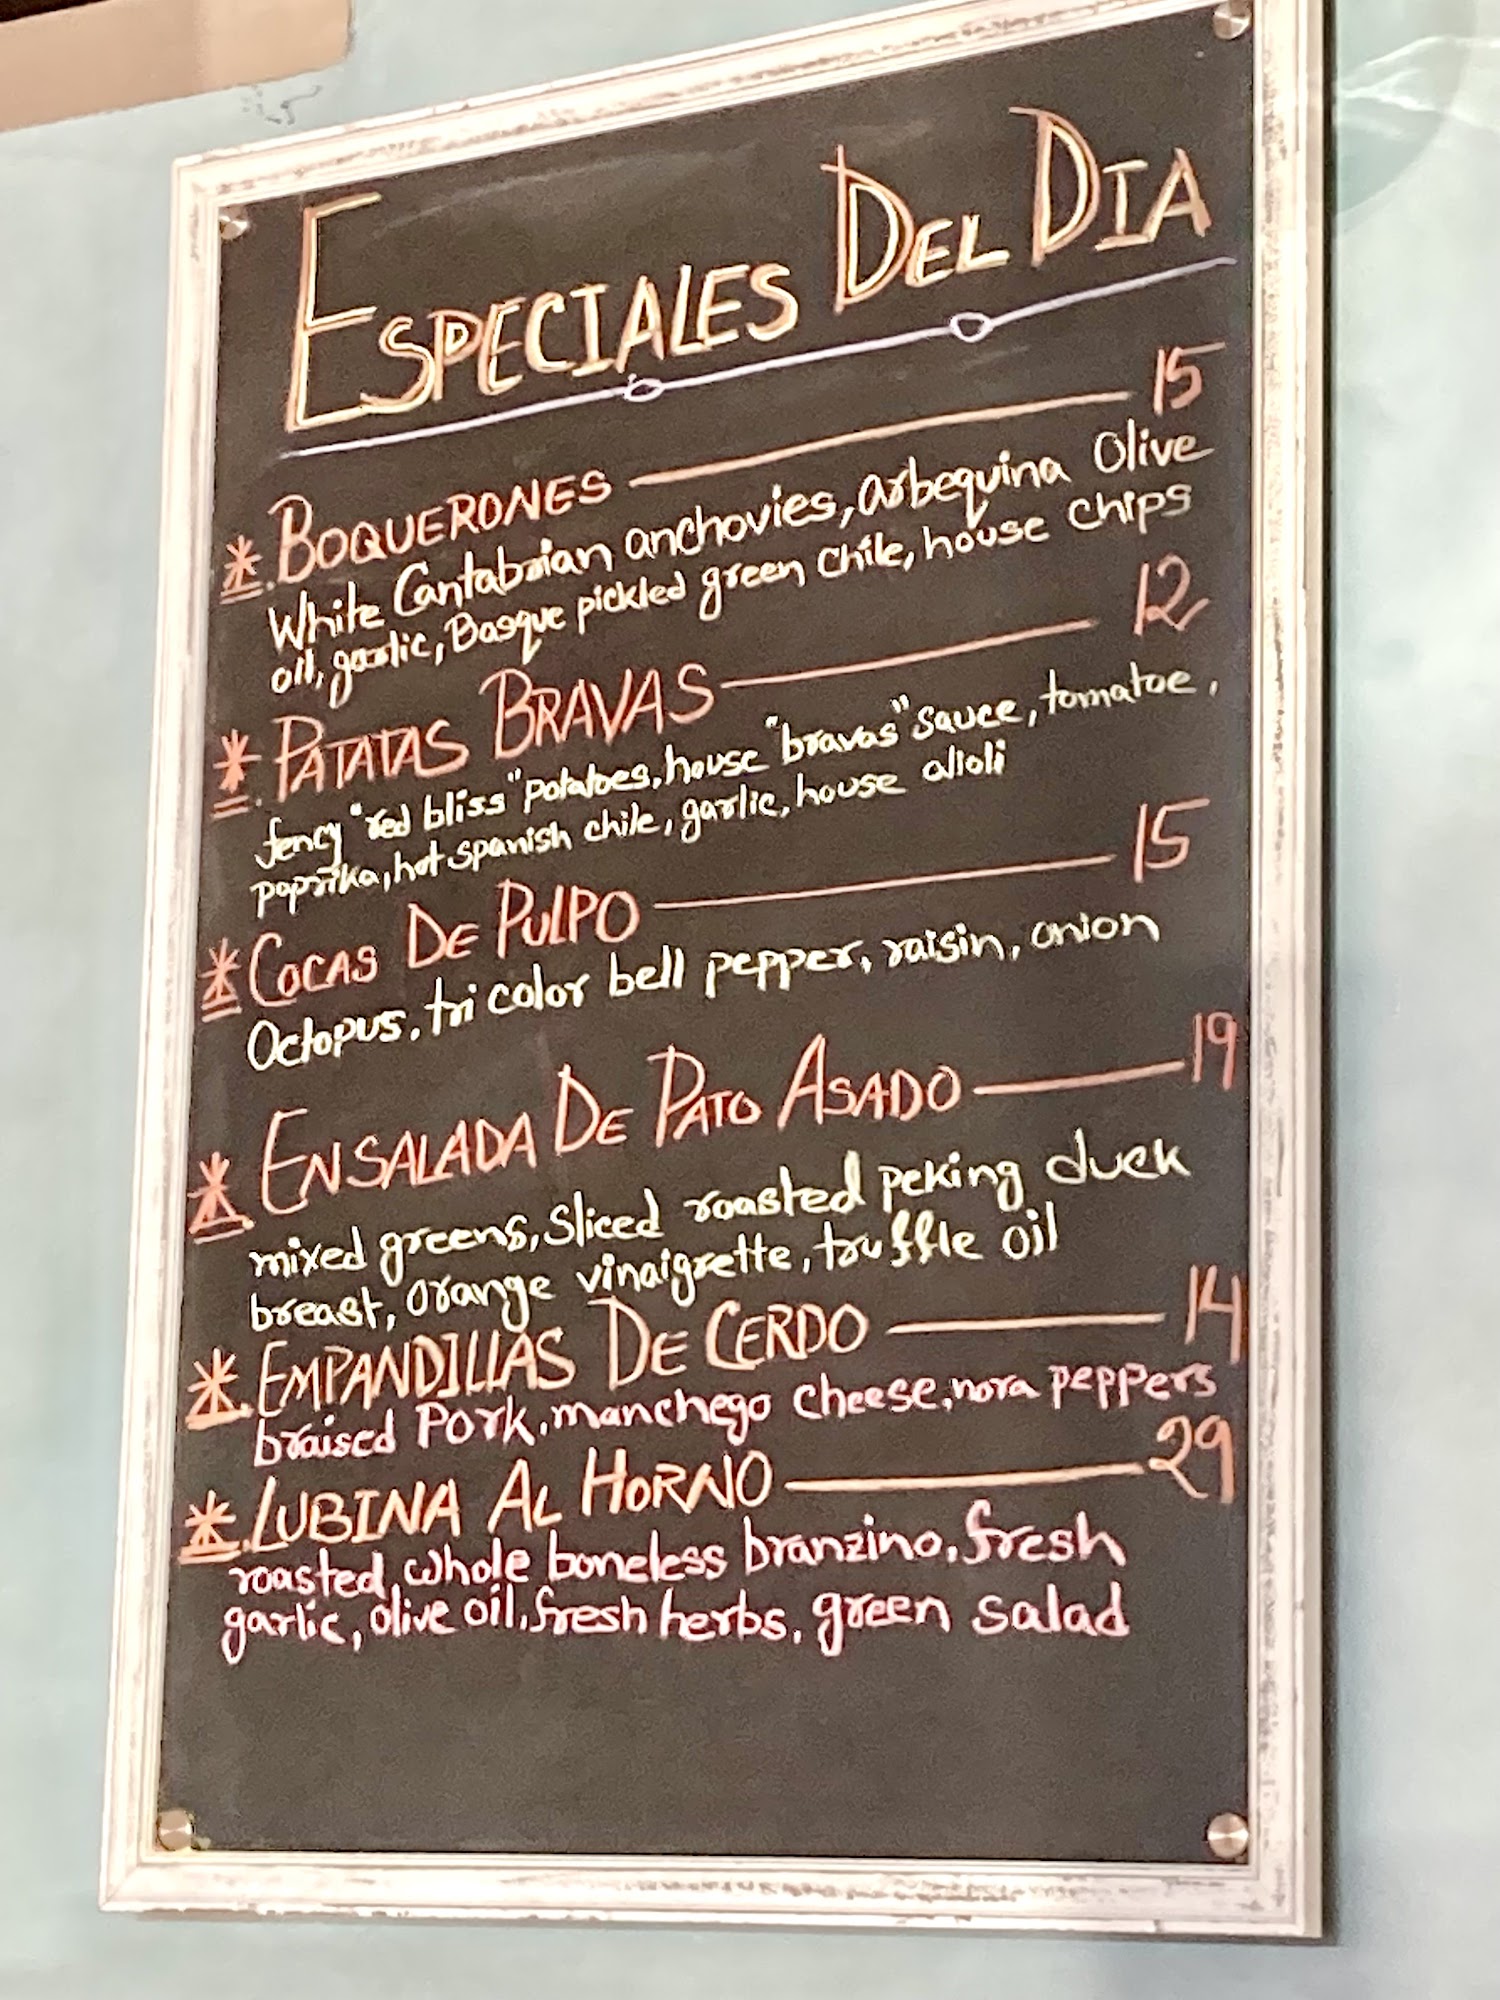 ESPECIALES DEL DIA
*. BOQUERONES 15
White Cantabrian anchovies, arbequina Olive
oil, garlic, Basque pickled green chile, house chips
*. PATATAS BRAVAS 12
fency "red bliss" potatoes, house "bravas" sauce, tomatoe,
paprika, hot spanish chile, garlic, house alioli
* COCAS DE PULPO 15
Octopus, tri color bell pepper, raisin, onion
*. ENSALADA DE PATO ASADO 19
mixed greens, Sliced roasted peking duck
breast, orange vinaigrette, truffle oil
*. EMPANDILLAS DE CERDO 14
braised Pork, manchego cheese, nora peppers
*. LUBINA AL HORNO 29
roasted, whole boneless branzino, fresh
garlic, olive oil, fresh herbs, green salad